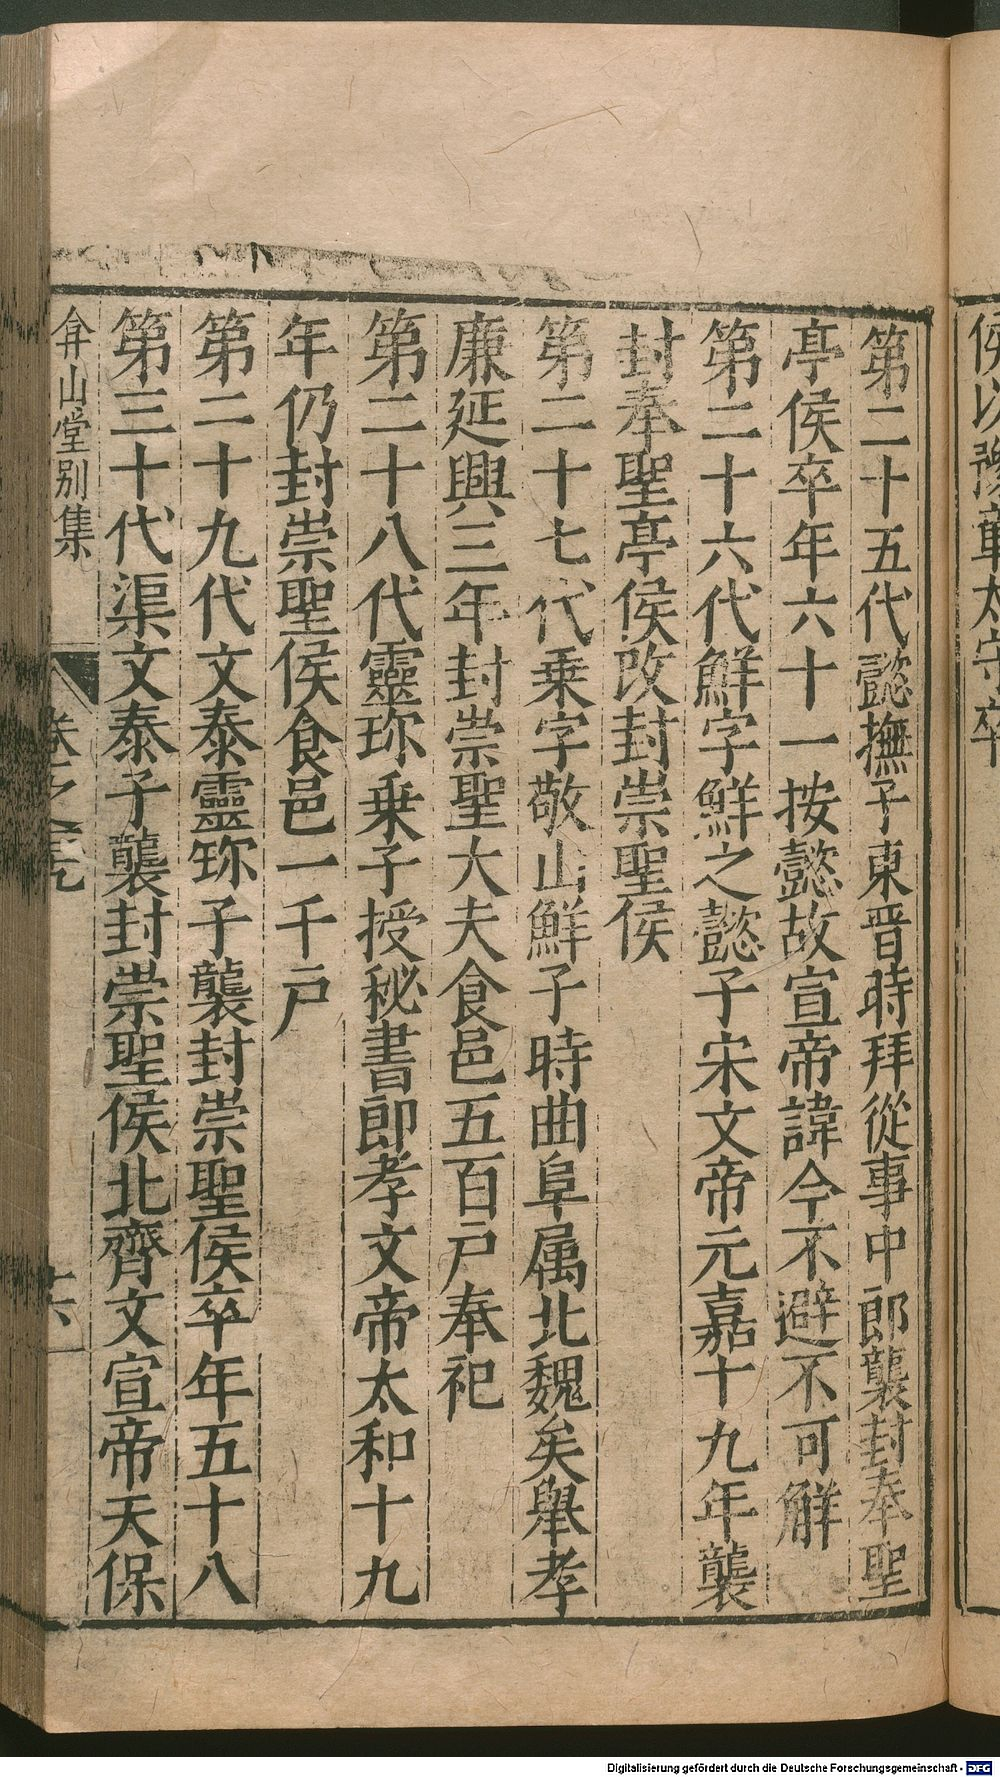 侯以豫章太守卒
第二十五代懿撫子東晉時拜從事中郎襲封奉聖
亭侯卒年六十一按懿故宣帝諱今不避不可解
第二十六代鮮字鮮之懿子宋文帝元嘉十九年襲
封奉聖亭侯改封崇聖侯
第二十七代乗字敬山鮮子時曲阜属北魏矣舉孝
廉延興三年封崇聖大夫食邑五百戸奉祀
第二十八代靈珎乗子授秘書郎孝文帝太和十九
年仍封崇聖侯食邑一千戸
第二十九代文泰靈珎子襲封崇聖侯卒年五十八
第三十代渠文泰子襲封崇聖侯北齊文宣帝天保
弇山堂別集
卷之
Digitalisierung gefördert durch die Deutsche Forschungsgemeinschaft - DFG